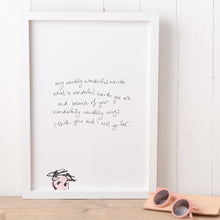 my weirdly wonderful weirdo
what a wonderful weirdo you are
and because of your
wonderfully weirdly ways
I think you and I will go far